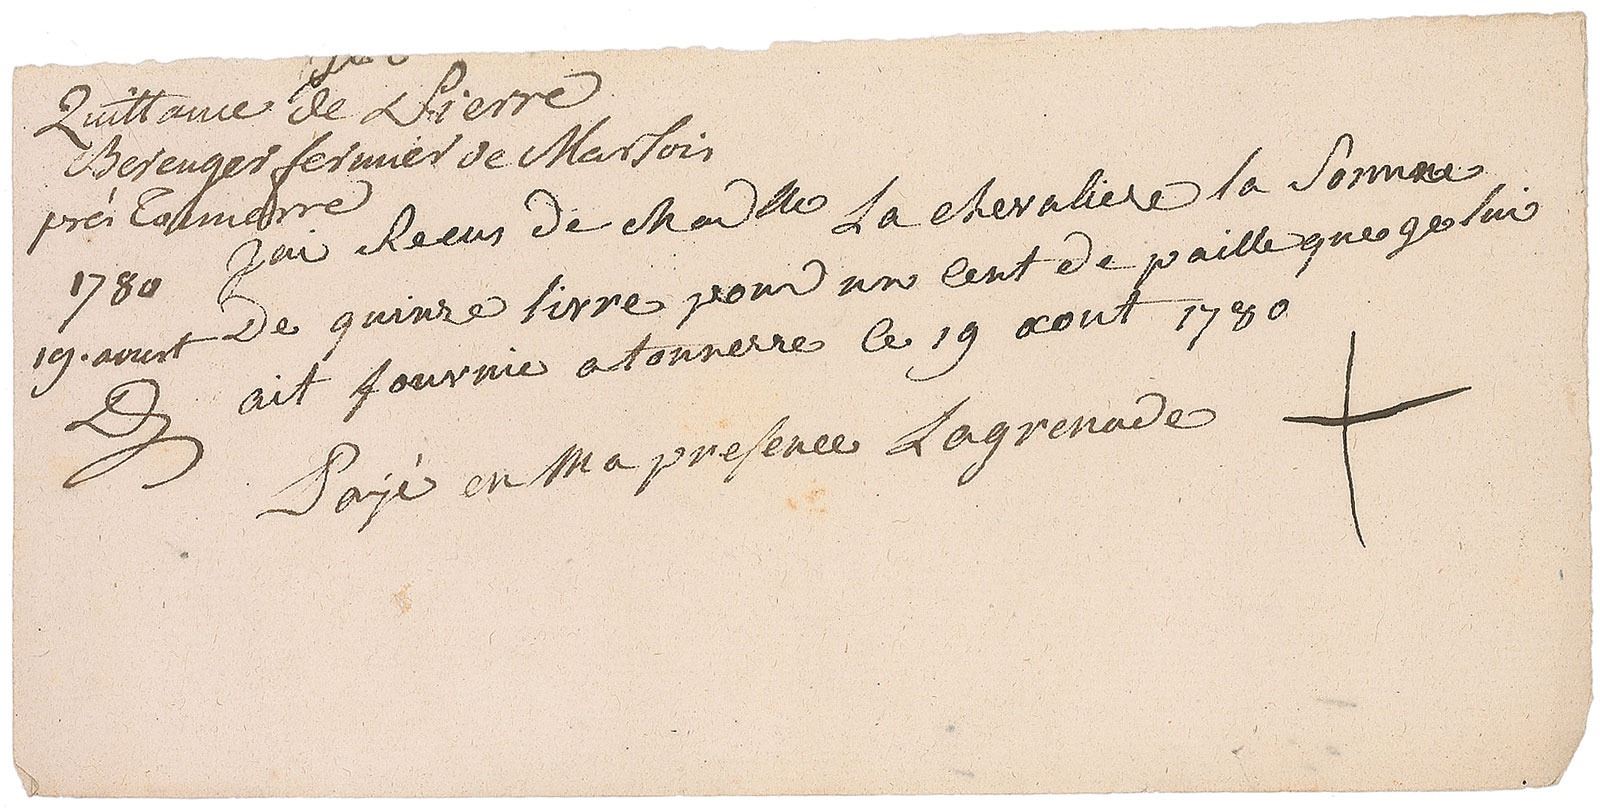 Quittance de Pierre
Berenger fermier de Marsois
prés
1780
19. aoust
Jai Recus de Mad^lle La chevaliere la Somme
De quinze livre pour un Cent de paille que ge lui
ait fournie a tonnerre le 19 aout 1780
Payé en Ma presence Lagrenade